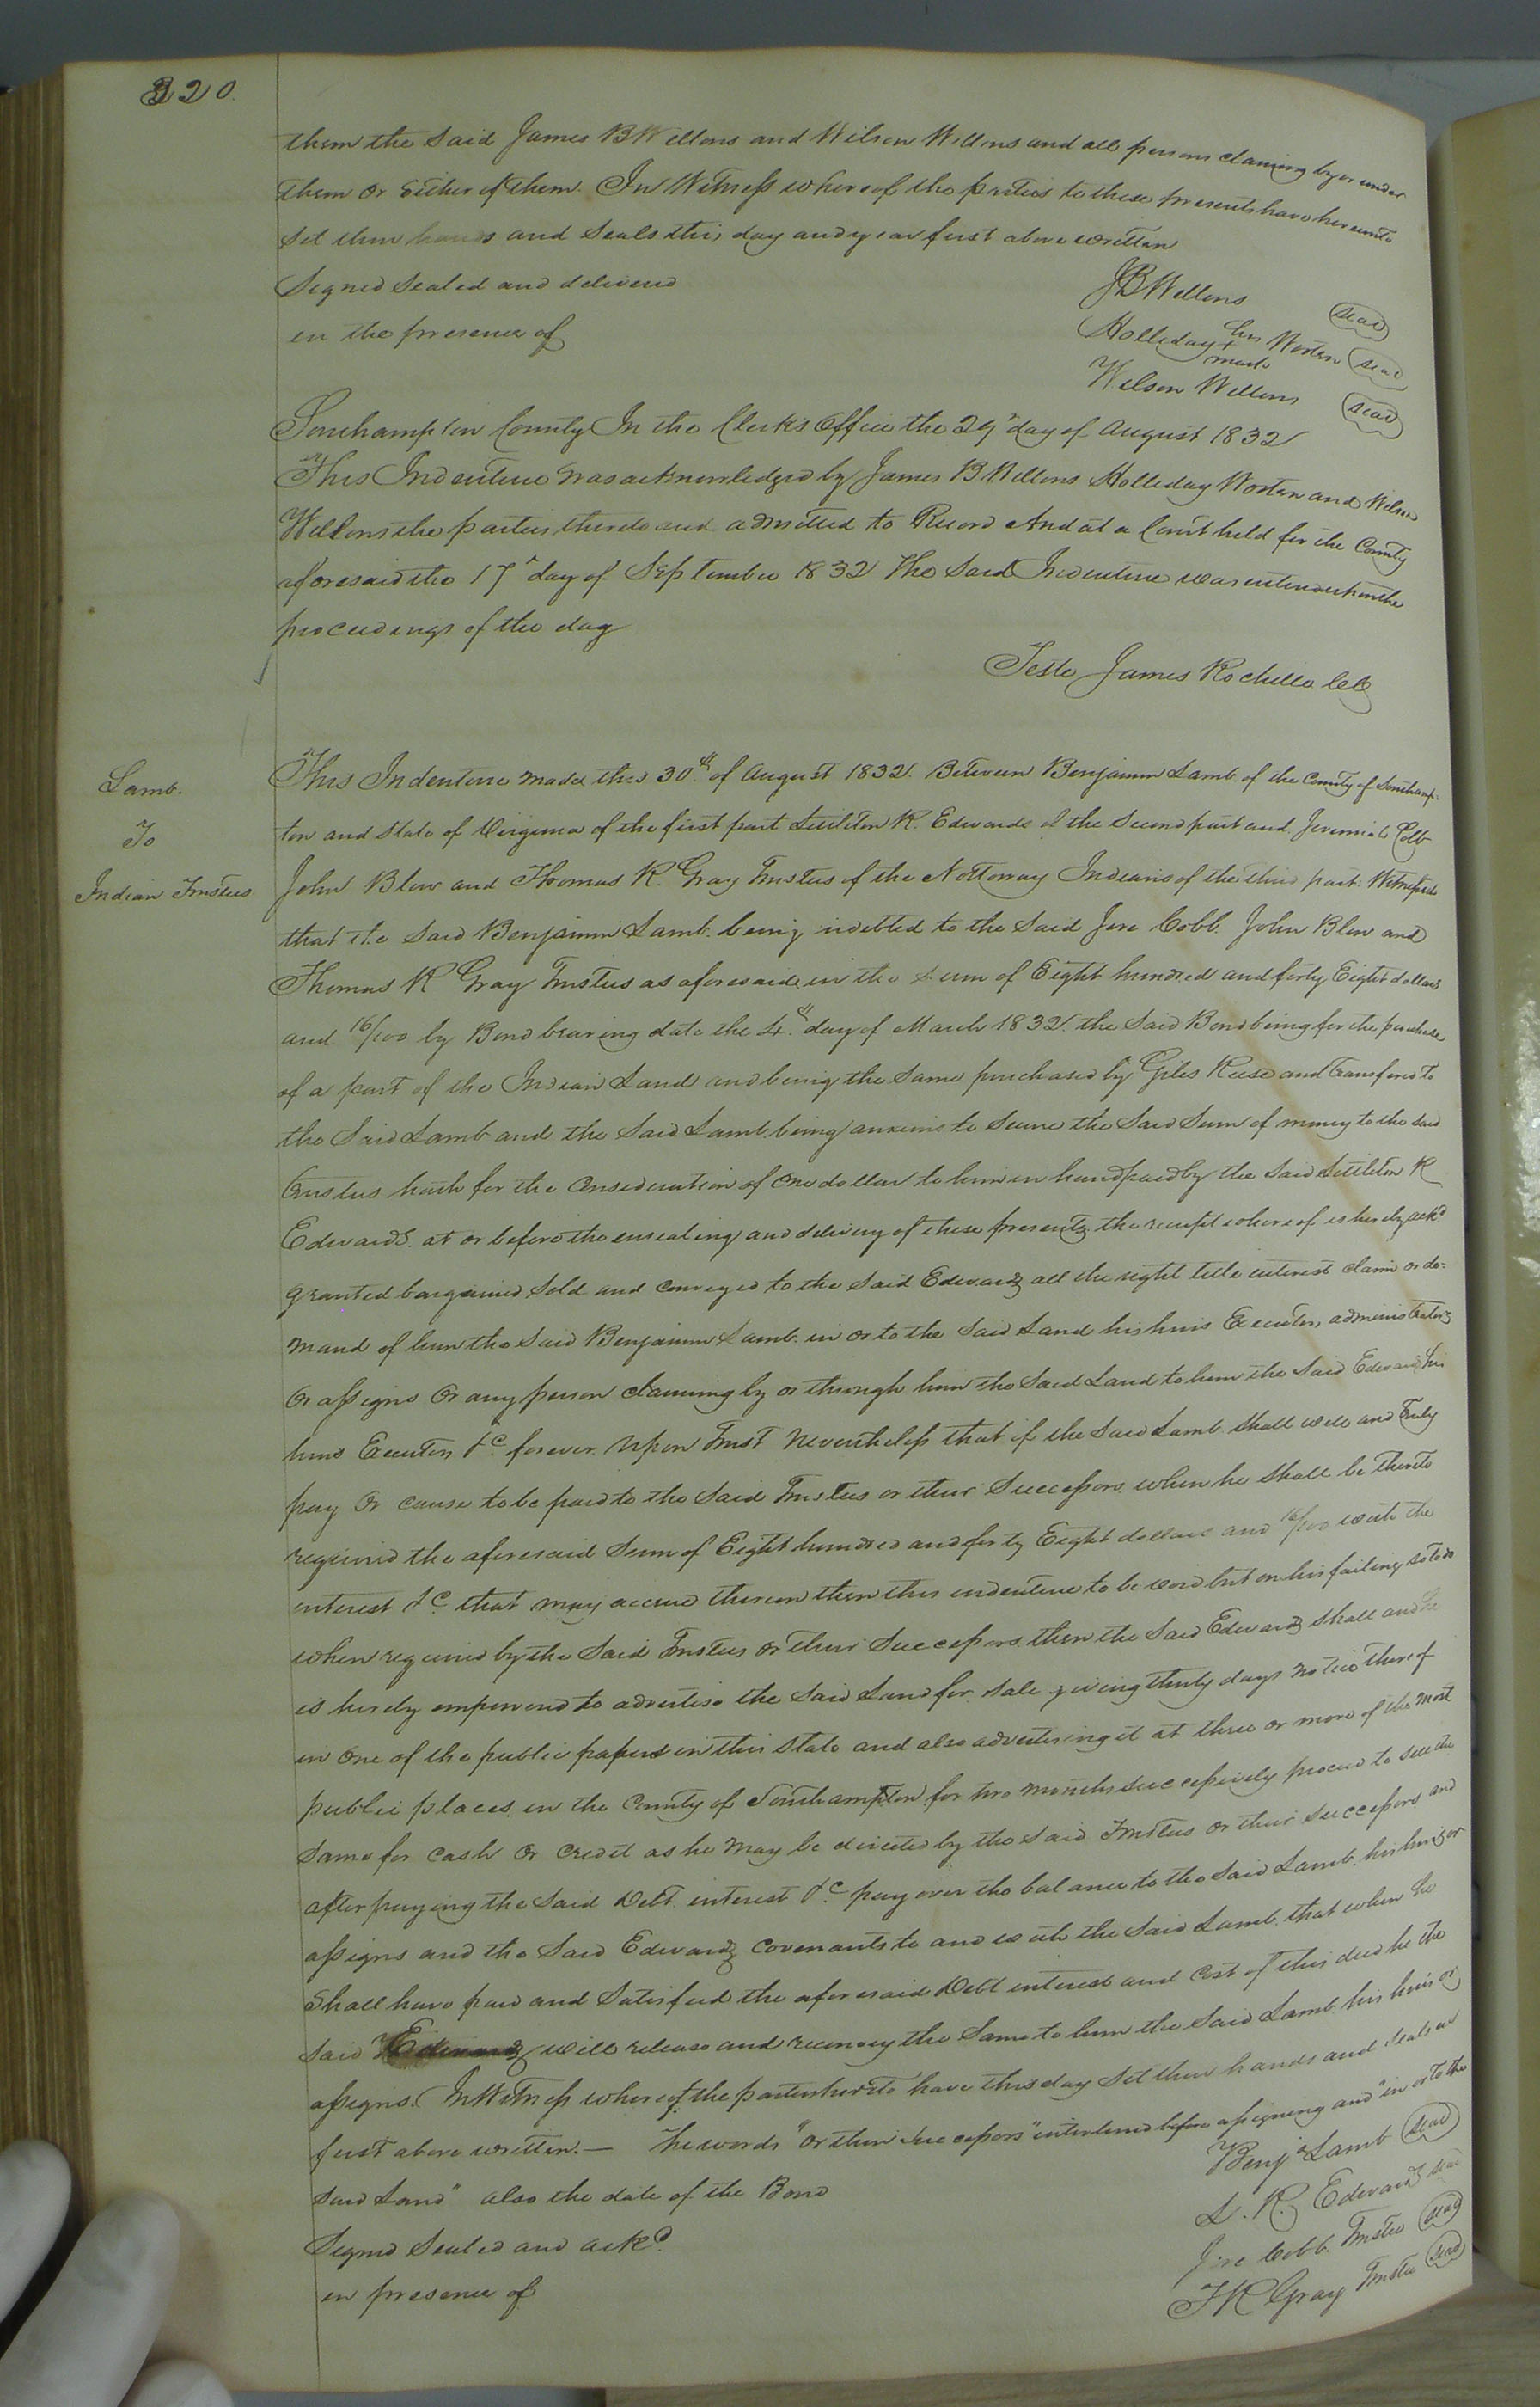 320.
them the said James B Wellons and Wilson Wellons and all persons claiming by or under
them or either of them. In Witness whereof the parties to these presents have hereunto
set their hands and seals this day and year first above written
Signed Sealed and delivered
in the presence of
JB Wellons seal
Holliday his + mark Worten seal
Wilson Wellons seal
Southampton County In the Clerks Office the 29th day of August 1832
This Indenture was acknowledged by James B Wellons Holliday Worten and Wilson
Wellons the parties thereto and admitted to Record And at a Court held for the County
aforesaid the 17th day of September 1832 The said Indenture was entered upon the
proceedings of the day
Teste James Rochelle CC
Lamb.
To
Indian Trustees
This Indenture made this 30th of August 1832. Between Benjamin Lamb of the County of Southamp-
ton and State of Virginia of the first part Littleton R. Edwards of the Second part and Jeremiah Cobb
John Blow and Thomas R. Gray Trustees of the Nottoway Indians of the third part. Witnesseth
that the said Benjamin Lamb being indebted to the said Jere Cobb. John Blow and
Thomas R Gray Trustees as aforesaid, in the sum of Eight hundred and forty Eight dollars
and 16/100 by Bond bearing date the 4th day of March 1832. the said Bond being for the purchase
of a part of the Indian Land and being the same purchased by Giles Reese and transfered to
the Said Lamb and the Said Lamb being anxious to secure the said Sum of money to the said
trustees hath for the consideration of one dollar to him in hand paid by the Said Littleton R
Edwards. at or before the ensealing and delivery of these presents the receipt whereof is hereby ackd
granted bargained sold and conveyed to the said Edwards all the right title interest claim or de-
mand of him the said Benjamin Lamb in or to the said Land his heirs Executors, administrators
or assigns or any person claiming by or through him the said Land to him the said Edwards his
heirs Executors &c forever. Upon Trust Nevertheless that if the said Lamb shall well and truly
pay or cause to be paid to the said Trustees or their Successors when he shall be thereto
required the aforesaid Sum of Eight hundred and forty Eight dollars and 16/100 with the
interest &c that may accrue thereon then this indenture to be void but on his failing so to do
when required by the said Trustees or their Successors. then the said Edwards shall and he
is hereby empowered to advertise the said Land for sale giving thirty days notice thereof
in one of the public papers in this State and also advertising it at three or more of the most
public places in the County of Southampton for two months successively proceed to sell the
same for cash or credit as he may be directed by the said Trustees or their successors and
after paying the said Debt interest &c pay over the balance to the said Lamb his heirs or
assigns and the said Edwards covenants to and with the said Lamb that when he
shall have paid and satisfied the aforesaid Debt interest and cost of this deed he the
said Edwards will release and reconvey the same to him the said Lamb his heirs or
assigns. In Witness whereof the parties hereto have this day set their hands and seals as
first above written.— The words "or their successors" interlined before assigning and "in or to the
said Land" also the date of the Bond
Signed Sealed and ackd.
in presence of
Benja Lamb seal
L. R. Edwards seal
Jere Cobb. Trustee seal
T R Gray Trustee seal